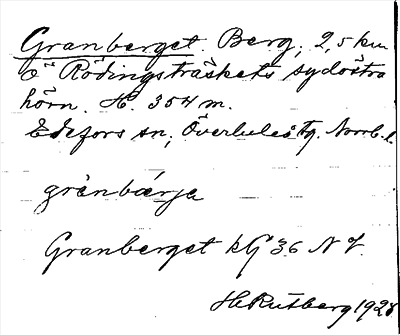 Granberget. Berg, 2,5 km
O Rödingsträskets sydöstra
hörn. H. 354 m.
Edefors sn, Överluleå tg. Norrb. l.
grànbærja
Granberget kG 36 NV.
H Rutberg 1928